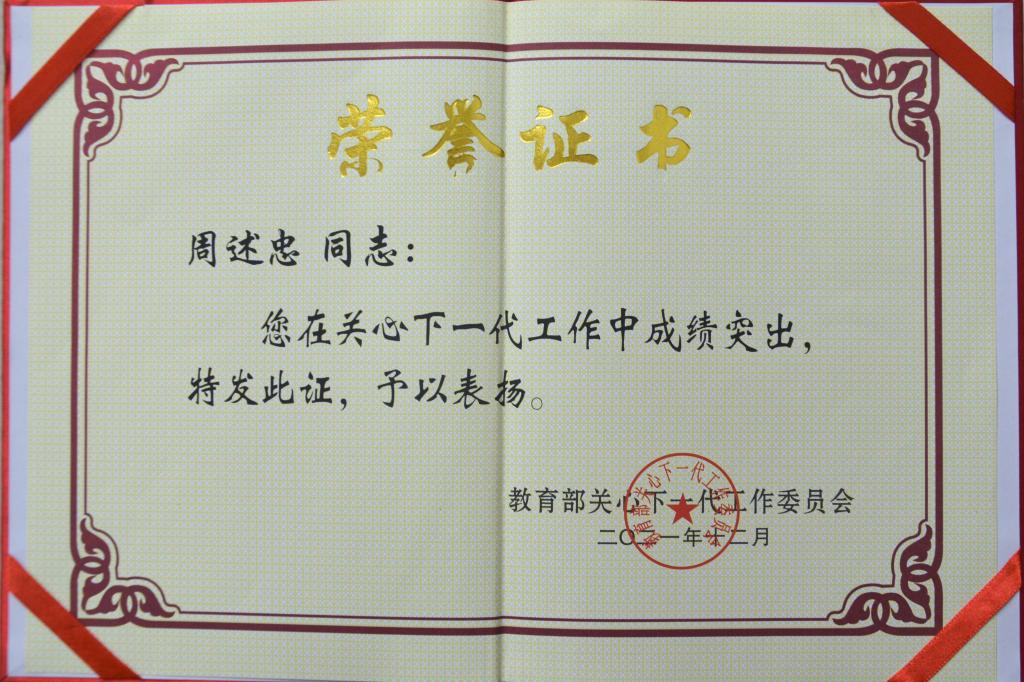 荣誉证书
周述忠 同志：
您在关心下一代工作中成绩突出，
特发此证，予以表扬。
教育部关心下一代工作委员会
二〇二一年十二月
教育部关心下一代工作委员会